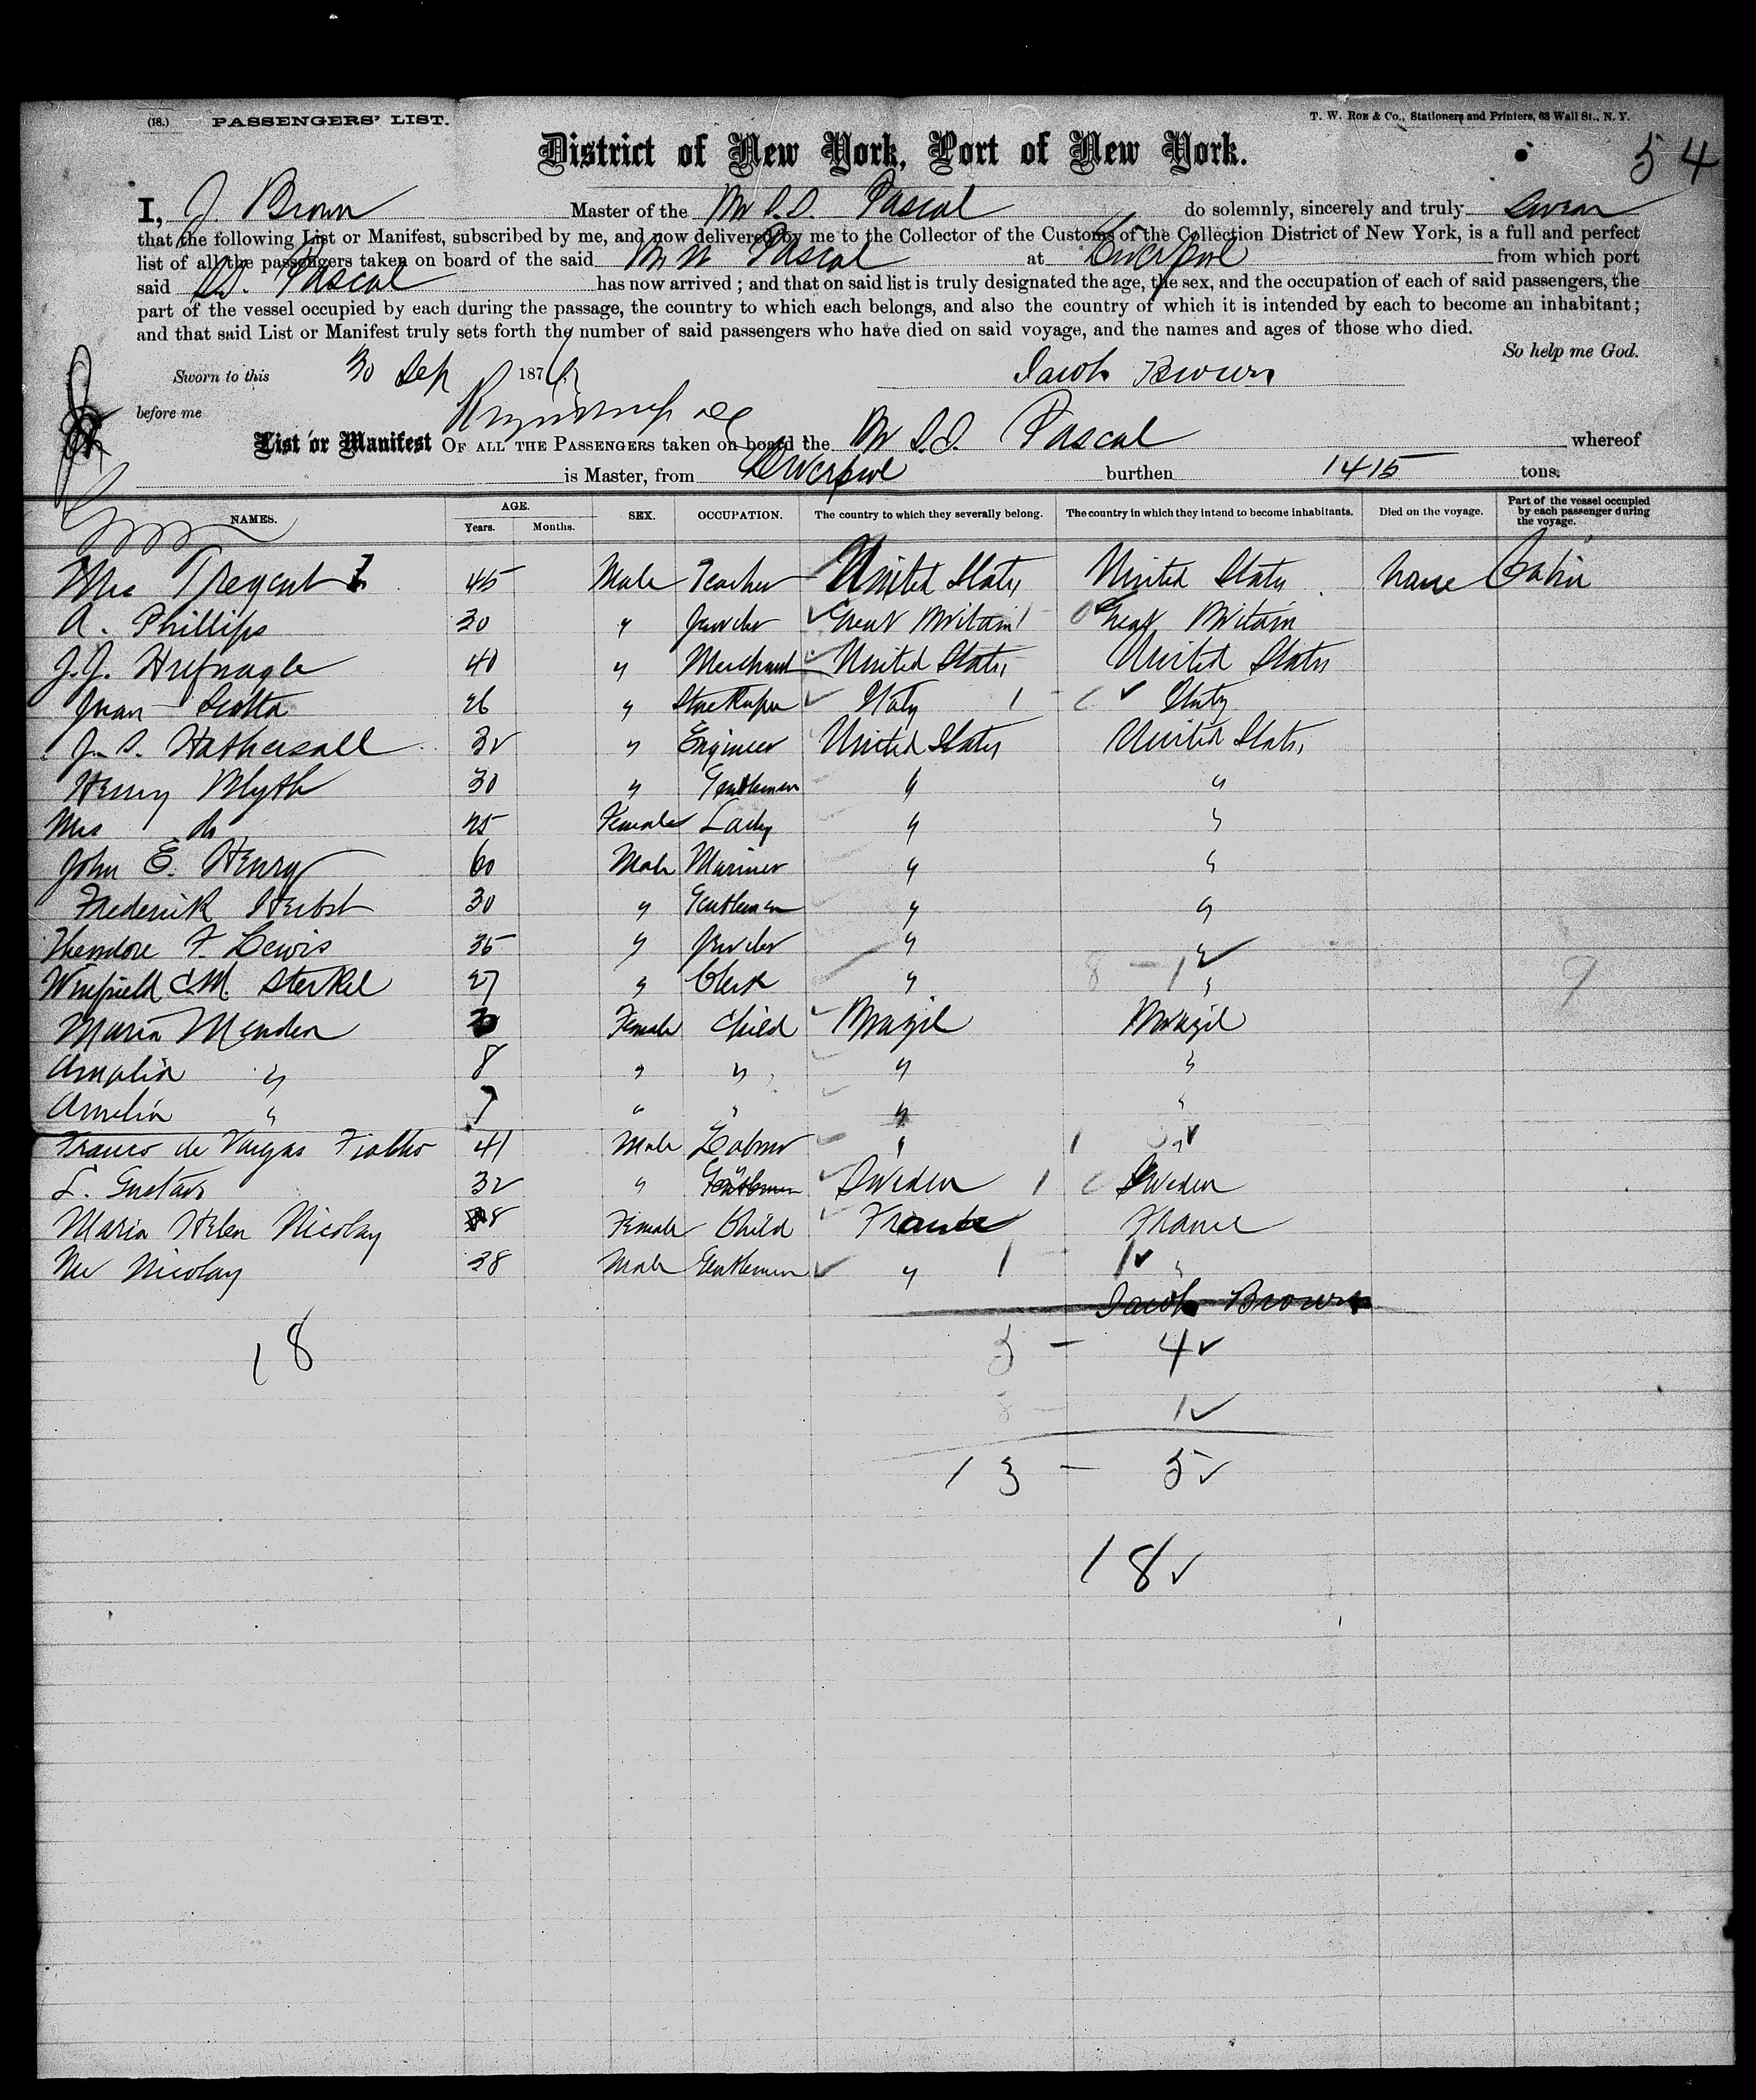 (18.) PASSENGERS' LIST. T. W. Roe & Co., Stationers and Printers, 63 Wall St., N. Y.
54
District of New York, Port of New York.
I, J. Brown Master of the Br S.S. Pascal do solemnly, sincerely and truly swear
that the following List or Manifest, subscribed by me, and now delivered by me to the Collector of the Customs of the Collection District of New York, is a full and perfect
list of all the passengers taken on board of the said Pascal at Liverpool from which port
said S.S. Pascal has now arrived ; and that on said list is truly designated the age, the sex, and the occupation of each of said passengers, the
part of the vessel occupied by each during the passage, the country to which each belongs, and also the country of which it is intended by each to become an inhabitant ;
and that said List or Manifest truly sets forth the number of said passengers who have died on said voyage, and the names and ages of those who died.
So help me God.
Sworn to this 30 Sep 187 Jacob Brown
before me
List or Manifest OF ALL THE PASSENGERS taken on board the Br S.S. Pascal whereof
is Master, from Liverpool burthen 1415 tons.
NAMES. AGE. Years. Months. SEX. OCCUPATION. The country to which they severally belong. The country in which they intend to become inhabitants. Died on the voyage. Part of the vessel occupied by each passenger during the voyage.
Tregent 45 Male Teacher United States United States none Cabin
A. Phillips 30 " Jeweler Great Britain 1 Great Britain
J.J. Hufnagle 40 " Merchant United States United States
Juan Scotta 26 " Storekeeper Italy 1 - Italy
J. S. Hathersall 32 " Engineer United States United States
Henry Blyth 30 " Gentleman " "
Mrs do 25 Female Lady " "
John E. Henry 60 Male Mariner " "
Frederick Herbst 30 " Gentleman " "
Theodore F. Lewis 35 " Jeweler " "
8 - 1 9
Winfield C.M. Sterkel 27 " Clerk " "
Maria Menden Female Child Brazil Brazil
Amalia " 8 " " " "
Amelia " 7 " " " "
Franco de Vargas Fialho 41 Male Labour " 1 "
L. Gustavo 32 " Gentleman Sweden 1 Sweden
Maria Helen Nicolay 8 Female Child France France
Mr Nicolay 38 Male Gentleman " 1 - 1 "
Jacob Brown
18
5 - 4
8 - 1
13 - 5
18